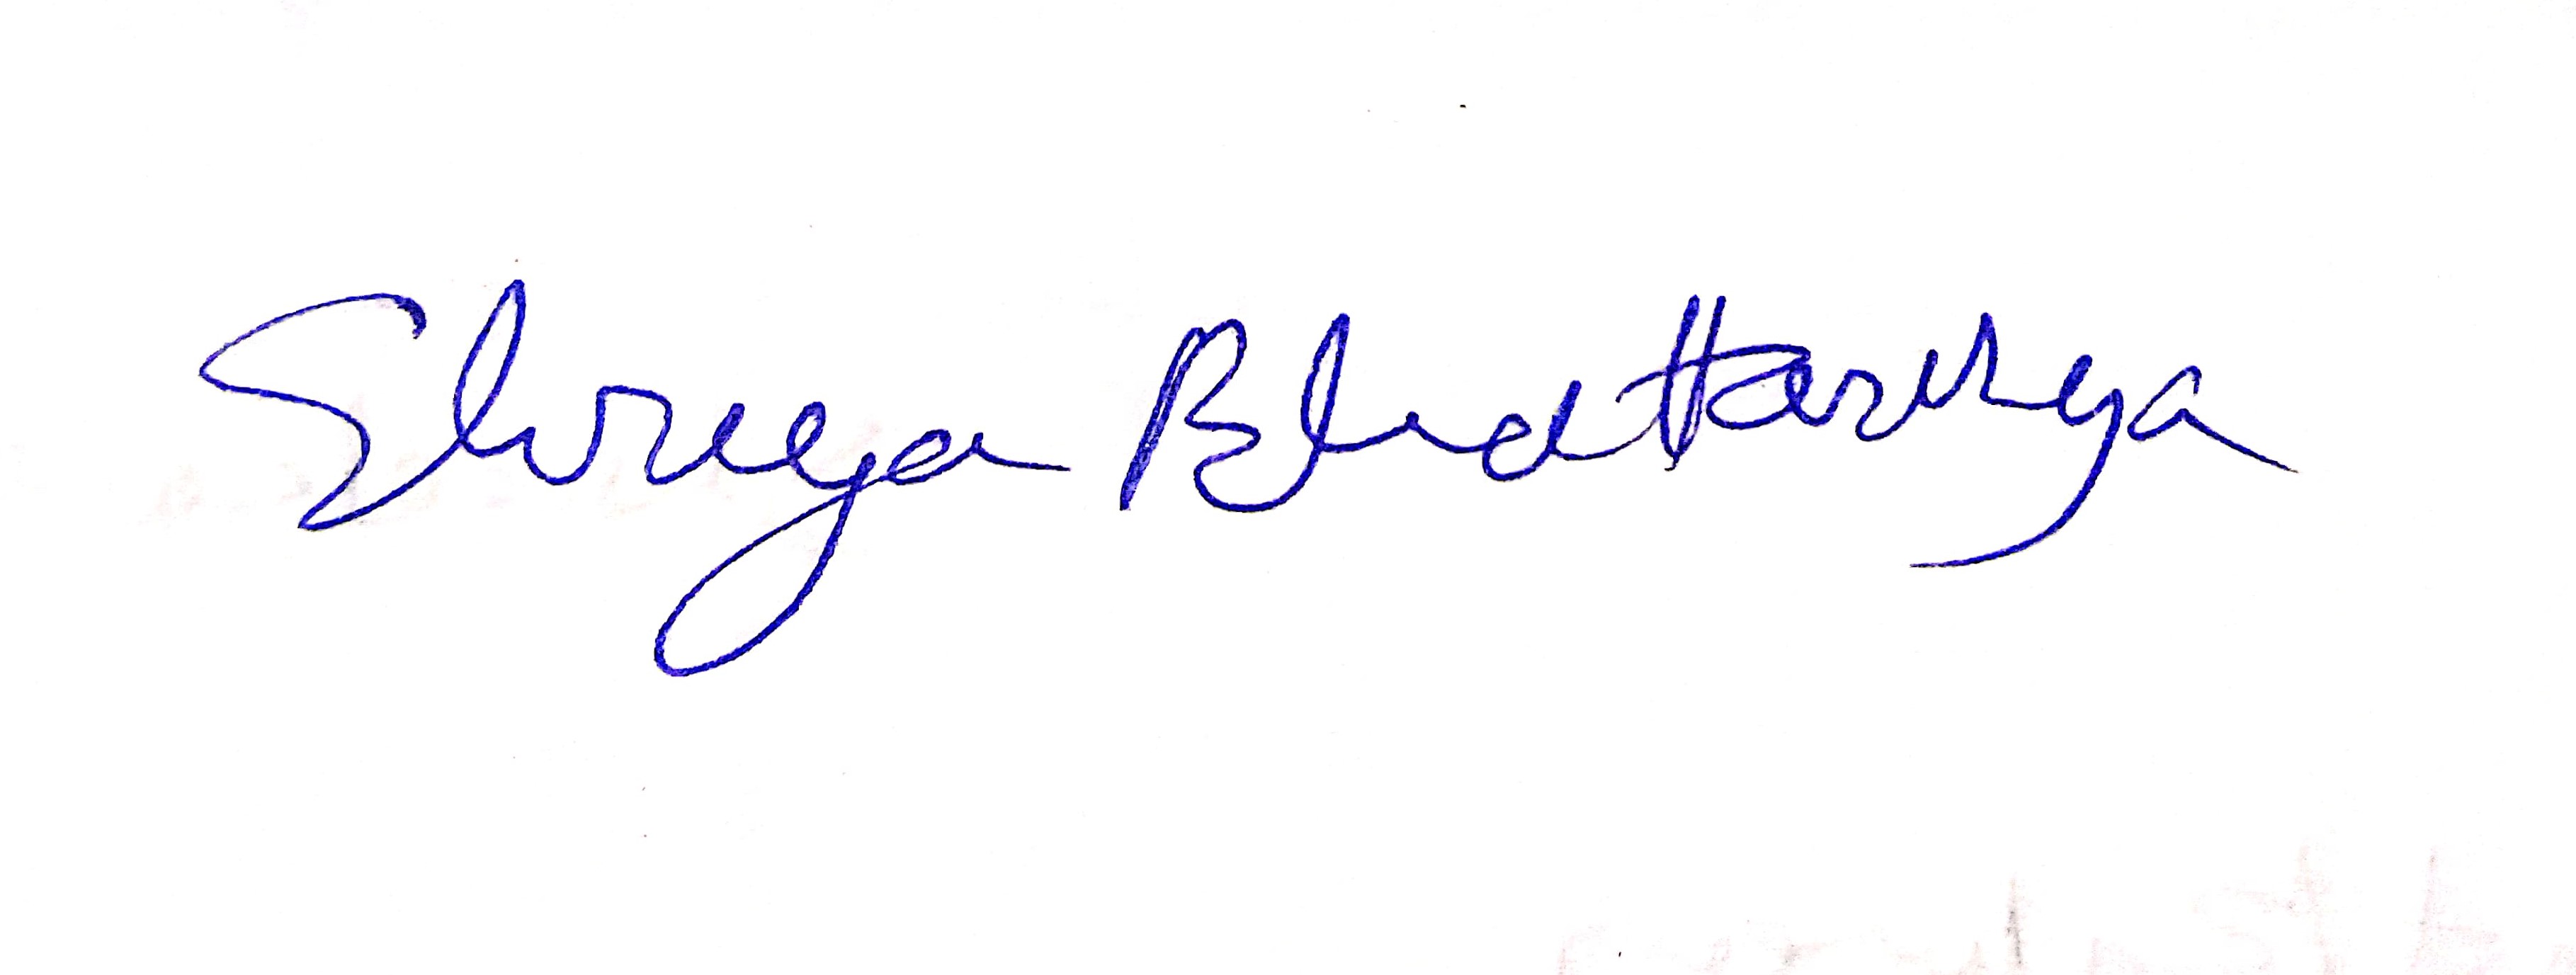 Shreya Bhattarchya